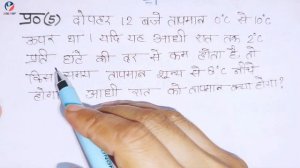 प्र० (5) दोपहर 12 बजे तापमान 0°c से 10°c
ऊपर था। यदि यह आधी रात तक 2°c
प्रति घंटे की दर से कम होता है, तो
किस समय तापमान शून्य से 8°c नीचे
होगा आधी रात को तापमान क्या होगा?